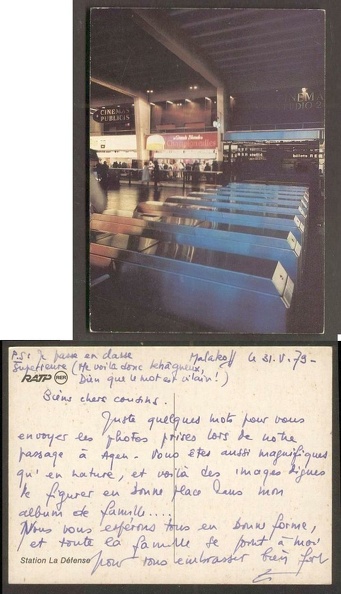 CINEMA
PUBLICIS
P.S: Je passe en classe
Supérieure (Me voilà donc tchâqueux,
Bien que le mot est vilain!)
Malakoff le 31.V.79-
RATP RER
Biens chers cousins.
Juste quelques mots pour vous
envoyer les photos prises lors de notre
passage à Agen. Vous êtes aussi magnifiques
qu'en nature, et voilà des images dignes
de figurer en bonne place dans mon
album de famille....
Nous vous espérons tous en bonne forme,
et toute la famille se joint à moi
pour vous embrasser bien fort
Station La Défense